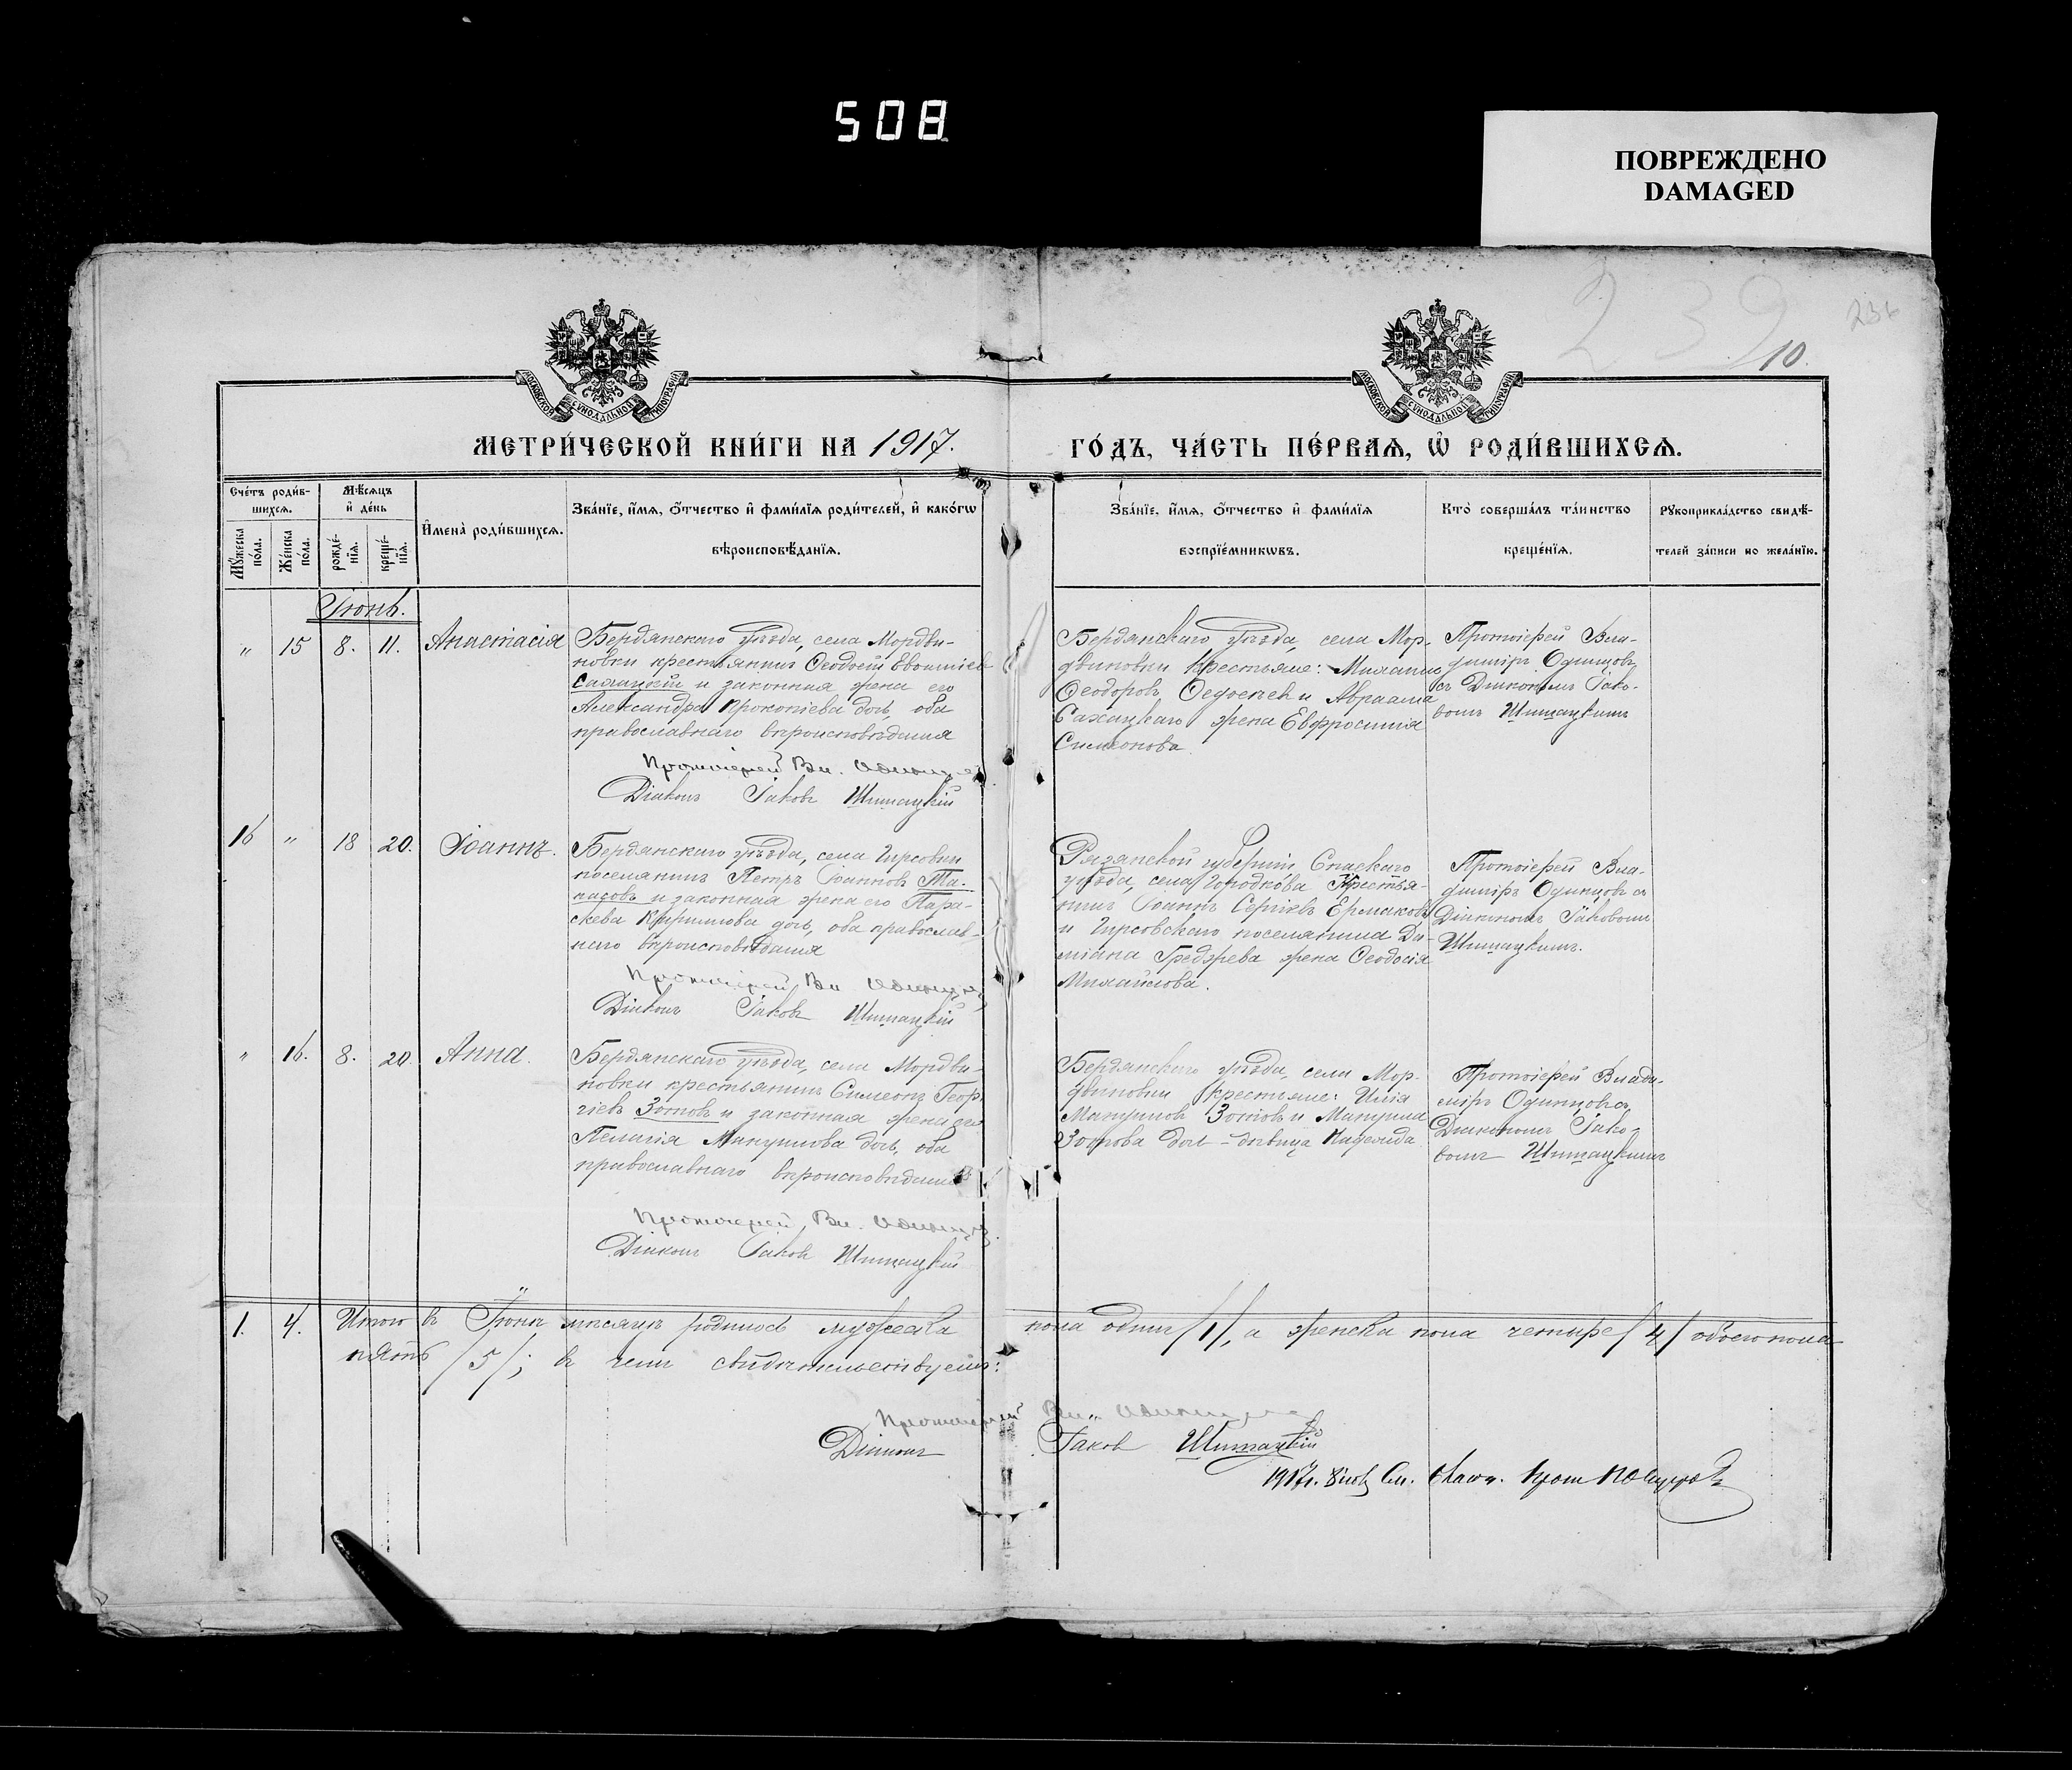 508
ПОВРЕЖДЕНО
DAMAGED
239
236
10.
МОСКОВСКОЙ СУНОДАЛЬНОЙ ТИПОГРАФІИ
МОСКОВСКОЙ СУНОДАЛЬНОЙ ТИПОГРАФІИ
МЕТРИ́ЧЕСКОЙ КНИ́ГИ НА 1917.
ГО́ДЪ, ЧА́СТЬ ПЕ́РВАЯ, Ѡ҆ РОДИ́ВШИХСЯ.
Сче́тъ роди́в-
шихся.
Му́жеска по́ла.
Же́нска по́ла.
Мѣ́сяцъ
и҆ де́нь
рожде́-
нїя.
креще́-
нїя.
И҆мена̀ роди́вшихся.
Зва́нїе, и҆́мя, о҆́тчество и҆ фами́лїя роди́телей, и҆ како́гѡ
вѣроисповѣ́данїя.
Зва́нїе, и҆́мя, о҆́тчество и҆ фами́лїя
воспрїе́мникѡвъ.
Кто̀ соверша́лъ та́инство
креще́нїя.
Рукоприкла́дство свидѣ́-
телей за́писи по жела́нїю.
Іюнь.
" 15 8. 11. Анастасія
Бердянскаго уѣзда, села Мордви-
новки крестьянинъ Ѳеодосій
и законная жена его
Александра Прокопіева дочь, оба
православнаго вѣроисповѣданія
Протоіерей Вл. Одинцовъ
Діаконъ Іаковъ Шишацкій
Бердянскаго уѣзда, села Мор-
двиновки крестьяне:
Ѳеодоровъ и Авраама
жена Евфросинія
Симеонова.
Протоіерей Вла-
диміръ Одинцовъ
съ Діакономъ Іако-
вомъ Шишацкимъ
16 " 18 20. Іоаннъ.
Бердянскаго уѣзда, села Гирсовки
поселянинъ Петръ Іоанновъ Та-
насовъ и законная жена его Пара-
скева Кириллова дочь, оба православ-
наго вѣроисповѣданія
Протоіерей Вл Одинцовъ
Діаконъ Іаковъ Шишацкій
Рязанской губерніи Спасскаго
уѣзда, села Городкова Крестья-
нинъ Іоаннъ Сергіевъ Ермаковъ
и Гирсовскаго поселянина Да-
міана жена Ѳеодосія
Михайлова.
Протоіерей Вла-
диміръ Одинцовъ съ
Діакономъ Іаковомъ
Шишацкимъ.
" 16. 8. 20. Анна.
Бердянскаго уѣзда, села Мордви-
новки крестьянинъ Симеонъ Геор-
гіевъ Зотовъ и законная жена его
Пелагія дочь, оба
православнаго вѣроисповѣданія
Протоіерей Вл. Одинцовъ.
Діаконъ Іаковъ Шишацкій
Бердянскаго уѣзда, села Мор-
двиновки крестьяне: Илія
Зотовъ и
Зотова дочь - дѣвица Надежда
Протоіерей Влади-
міръ Одинцовъ съ
Діакономъ Іако-
вомъ Шишацкимъ
1. 4. Итого въ Іюнѣ мѣсяцѣ родилось мужеска пола одинъ /1/, а женска пола четыре /4/ обоего пола
пять /5/; въ чемъ свидѣтельствуемъ:
Протоіерей Вл. Одинцовъ
Діаконъ Іаковъ Шишацкій
1917г.